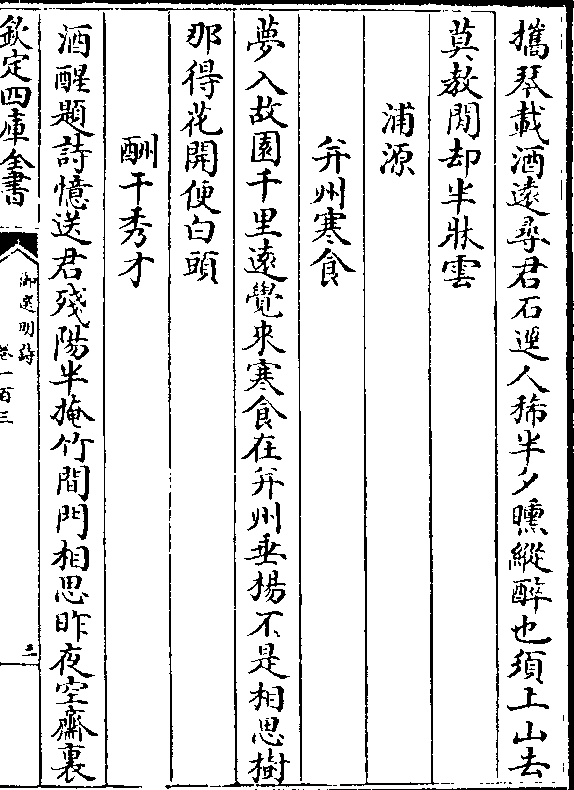 攜琴載酒遠尋君石逕人稀半夕曛縱醉也須上山去
莫教閒却半牀雲
浦源
并州寒食
夢入故園千里遠覺來寒食在并州垂楊不是相思樹
那得花開便白頭
酬干秀才
酒醒題詩憶送君殘陽半掩竹間門相思昨夜空齋裏
欽定四庫全書
御選明詩
卷一百三
三